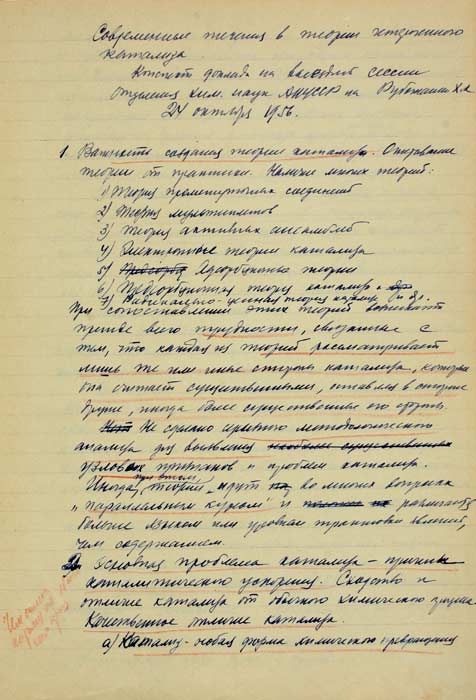 Современные течения в теории гетерогенного
катализа.
Конспект доклада на выездной сессии
отделения хим. наук АНУССР на Рубежанском
24 октября 1956.
1. Важность создания теории катализа. Отставание
теории от практики. Наличие многих теорий:
1) Теория промежуточных соединений
2) Теория мультиплетов
3) Теория активных ансамблей
4) Электронные теории катализа
5) Адсорбционные теории
6) Предсорбционная теория катализа и др
7) Радикально-цепная теория катализа и др.
При сопоставлении этих теорий возникают
прежде всего трудности, связанные с
тем, что каждая из теорий рассматривает
лишь те или иные стороны катализа, которые
она считает существенными, оставляя в стороне
другие, иногда более существенные его стороны.
Не сделано единого методологического
анализа для выявления наиболее существенных
узловых признаков и проблем катализа.
Иногда теории при этом идут во многих вопросах
"параллельным курсом" и различаются
больше языком или уровнем трактовки явлений,
чем содержанием.
2. Основная проблема катализа – причины
каталитического ускорения. Сходство и
отличие катализа от обычного химического
Качественное отличие катализа.
а) Катализ – новая форма химического превращения